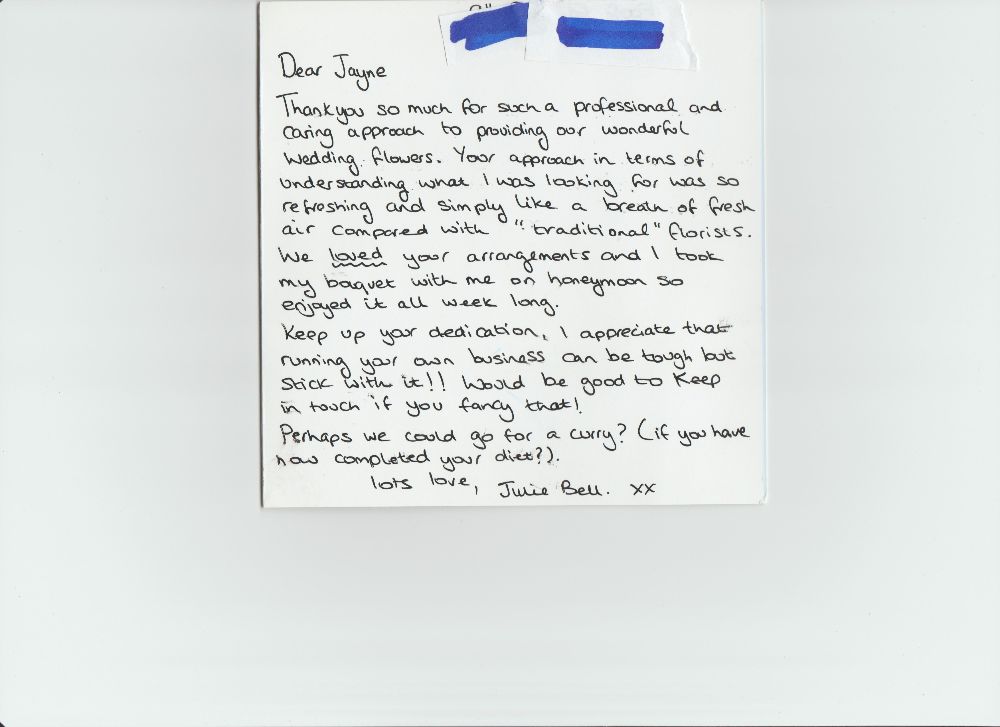 Dear Jayne
Thankyou so much for such a professional and
caring approach to providing our wonderful
wedding flowers. Your approach in terms of
understanding what I was looking for was so
refreshing and simply like a breath of fresh
air compared with "traditional" florists.
We loved your arrangements and I took
my boquet with me on honeymoon so
enjoyed it all week long.
Keep up your dedication, I appreciate that
running your own business can be tough but
stick with it!! Would be good to keep
in touch if you fancy that!
Perhaps we could go for a curry? (if you have
now completed your diet?).
lots love, Julie Bell. xx